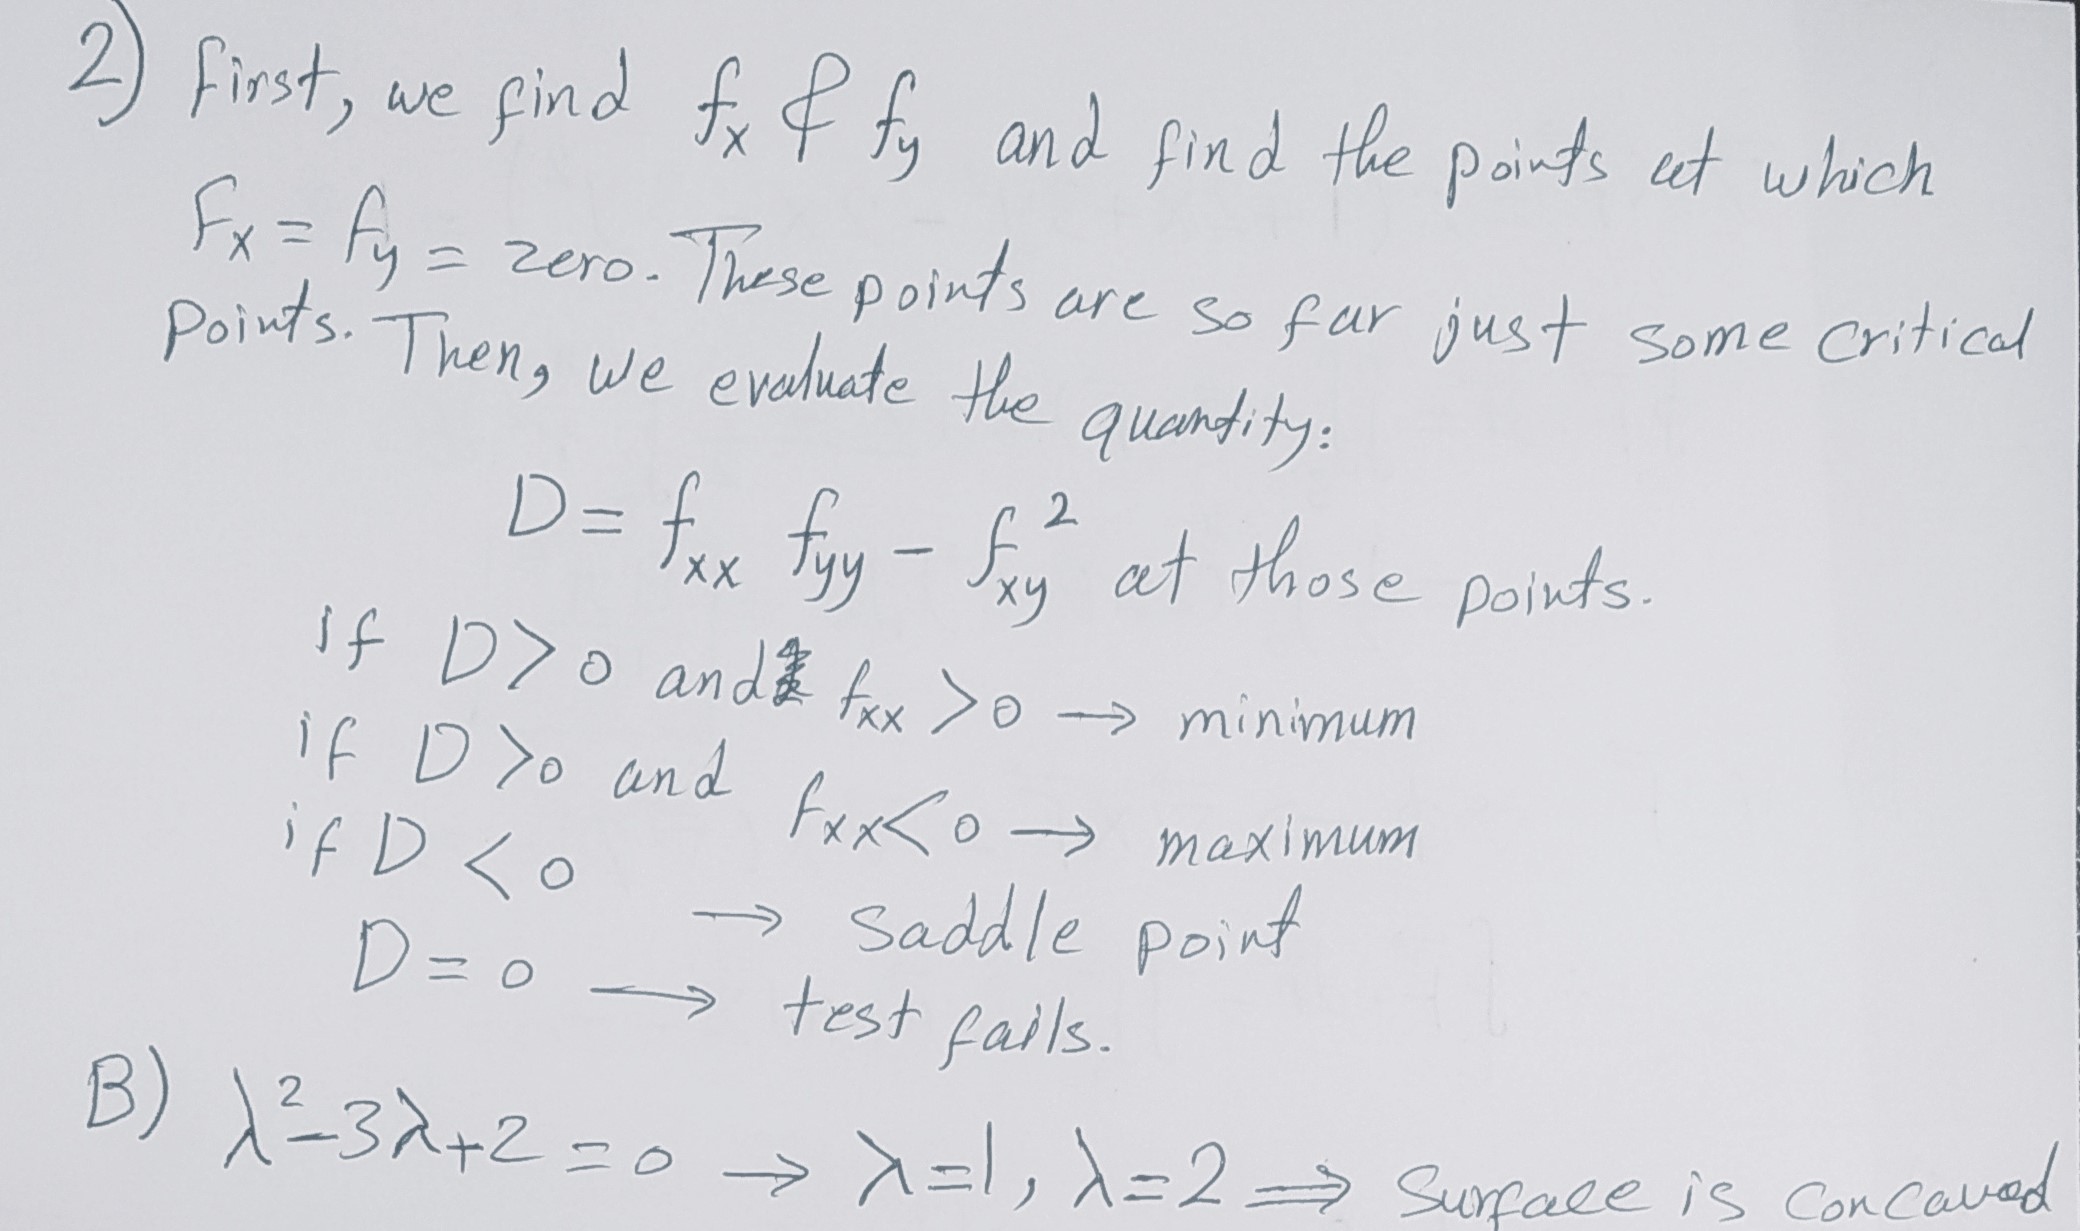 2) First, we find fx & fy and find the points at which
Fx = fy = zero. These points are so far just some critical
points. Then, we evaluate the quantity:
D = fxx fyy - fxy² at those points.
if D > 0 and fxx > 0 → minimum
if D > 0 and fxx < 0 → maximum
if D < 0 → saddle point
D = 0 → test fails.
B) λ² - 3λ + 2 = 0 → λ = 1, λ = 2 ⇒ Surface is concaved